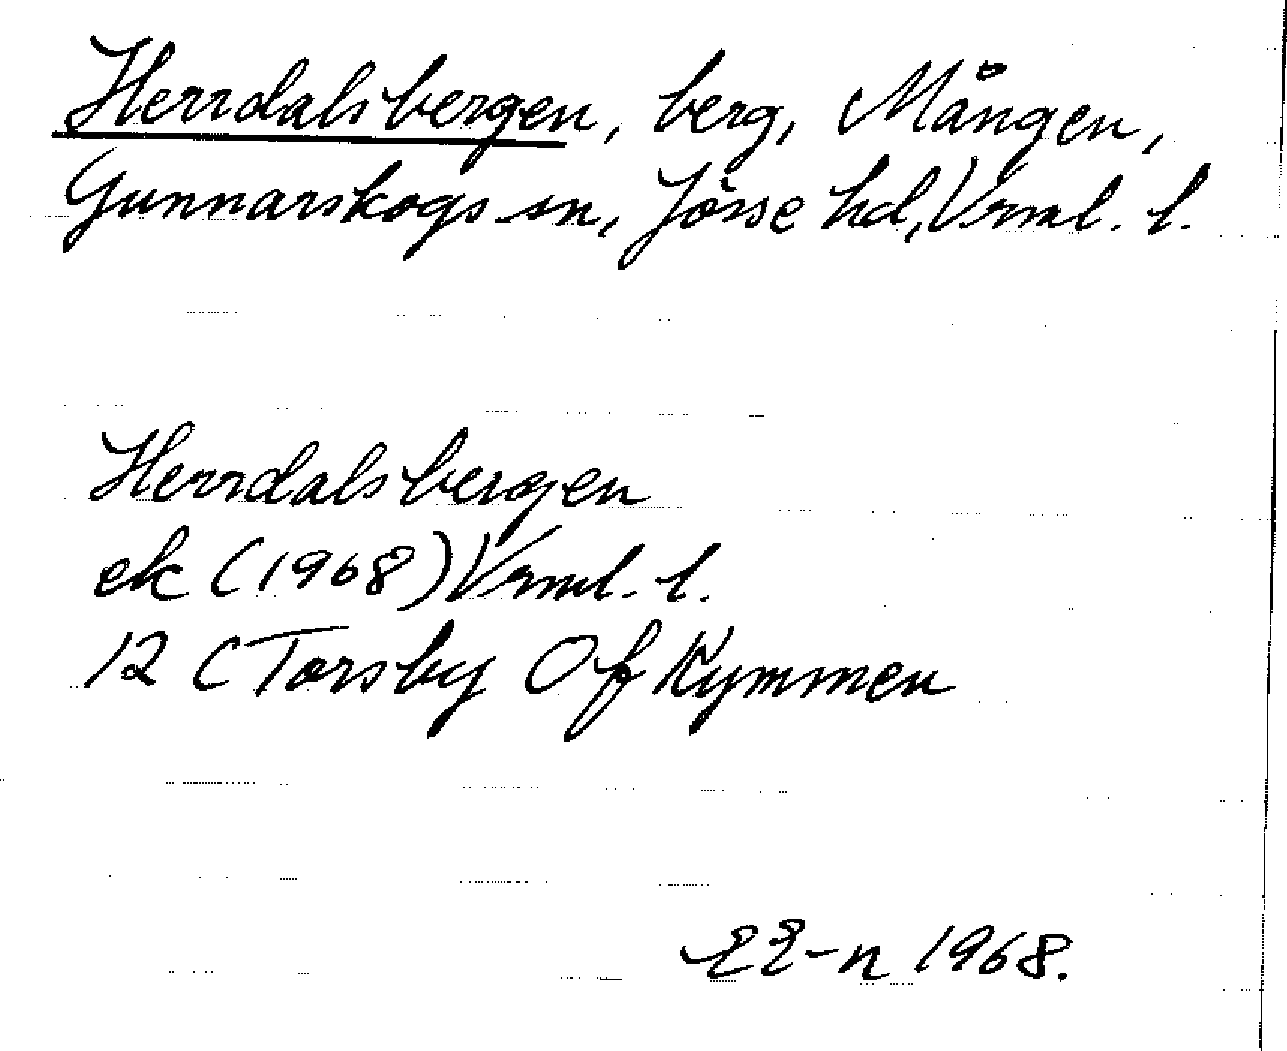 Herrdalsbergen, berg, Mången,
Gunnarskogs sn, Jösse hd, Vrml. l.
Herrdalsbergen
ek (1968) Vrml. l.
12 C Torsby Of Kymmen
EE-n 1968.